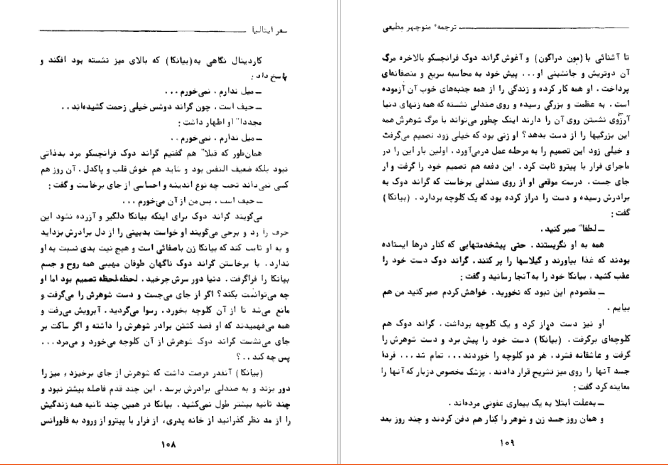 سفر ایتالیا
کاردینال نگاهی به (بیانکا) که بالای میز نشسته بود افکند و
پاسخ داد:
ــ میل ندارم. نمی‌خورم...
ــ حیف است. چون گراند دوشس خیلی زحمت کشیده‌اند..
مجددا" او اظهار داشت:
ــ میل ندارم. نمی‌خورم..
همان‌طور که قبلا" هم گفتیم گراند دوک فرانچسکو مرد بدذاتی
نبود بلکه ضعیف النفس بود و شاید هم خوش قلب و پاکدل. آن روز هم
کسی نمی‌داند تحت چه نوع اندیشه و احساسی از جای برخاست و گفت:
ــ حیف است، پس من از آن می‌خورم...
می‌گویند گراند دوک برای اینکه بیانکا دلگیر و آزرده نشود این
حرف را زد و برخی می‌گویند او خواست بدبینی را از دل برادرش بزداید
و به او ثابت کند که بیانکا زن باصفائی است و هیچ نیت بدی نسبت به او
ندارد. با برخاستن گراند دوک ناگهان طوفان مهیبی همه روح و جسم
بیانکا را فراگرفت. دنیا دور سرش چرخید. لحظه لحظه تصمیم بود اما او
چه می‌توانست بکند؟ اگر از جای می‌جست و دست شوهرش را می‌گرفت و
مانع می‌شد تا از آن کلوچه بخورد، رسوا می‌گردید. آبرویش می‌رفت و
همه می‌فهمیدند که او قصد کشتن برادر شوهرش را داشته و اگر ساکت بر
جای می‌نشست گراند دوک شوهرش از آن کلوچه می‌خورد و می‌مرد...
پس چه کند..؟
(بیانکا) آنقدر فرصت داشت که شوهرش از جای برخیزد، میز را
دور بزند و به صندلی برادرش برسد. این چند قدم فاصله بیشتر نبود و
چند ثانیه بیشتر طول نمی‌کشید. بیانکا در همین چند ثانیه همه زندگیش
را از مد نظر گذرانید از خانه پدری، از فرار با پیترو از ورود به فلورانس
۱۰۸
ترجمهٔ منوچهر مطیعی
تا آشنائی با (مون دراگون) و آغوش گراند دوک فرانچسکو بالاخره مرگ
آن دوتریش و جانشینی او... پیش خود به محاسبه سریع و منصفانه‌ای
پرداخت. او همه کار کرده و زندگی را از همه جنبه‌های خوب آن آزموده
است. به عظمت و بزرگی رسیده و روی صندلی نشسته که همه زنهای دنیا
آرزوی نشستن روی آن را دارند اینک چطور می‌تواند با مرگ شوهرش همه
این بزرگیها را از دست بدهد؟ او زنی بود که خیلی زود تصمیم می‌گرفت
و خیلی زود این تصمیم را به مرحله عمل درمی‌آورد. اولین بار این را در
ماجرای فرار با پیترو ثابت کرد. این دفعه هم تصمیم خود را گرفت و از
جای جست. درست موقعی او از روی صندلی برخاست که گراند دوک به
برادرش رسیده و دست را دراز کرده بود که یک کلوچه بردارد. (بیانکا)
گفت:
ــ لطفا" صبر کنید.
همه به او نگریستند. حتی پیشخدمتهایی که کنار درها ایستاده
بودند که غذا بیاورند و گیلاسها را پر کنند. گراند دوک دست خود را
عقب کشید. بیانکا خود را به آنجا رسانید و گفت:
ــ مقصودم این نبود که نخورید. خواهش کردم صبر کنید من هم
بیایم.
او نیز دست دراز کرد و یک کلوچه برداشت. گراند دوک هم
کلوچه‌ای برگرفت. (بیانکا) دست خود را پیش برد و دست شوهرش را
گرفت و عاشقانه فشرد. هر دو کلوچه را خوردند... تمام شد... فردا
جسد آنها را روی میز تشریح قرار دادند. پزشک مخصوص دربار که آنها را
معاینه کرد گفت:
ــ به‌علت ابتلا به یک بیماری عفونی مرده‌اند.
و همان روز جسد زن و شوهر را کنار هم دفن کردند و چند روز بعد
۱۰۹